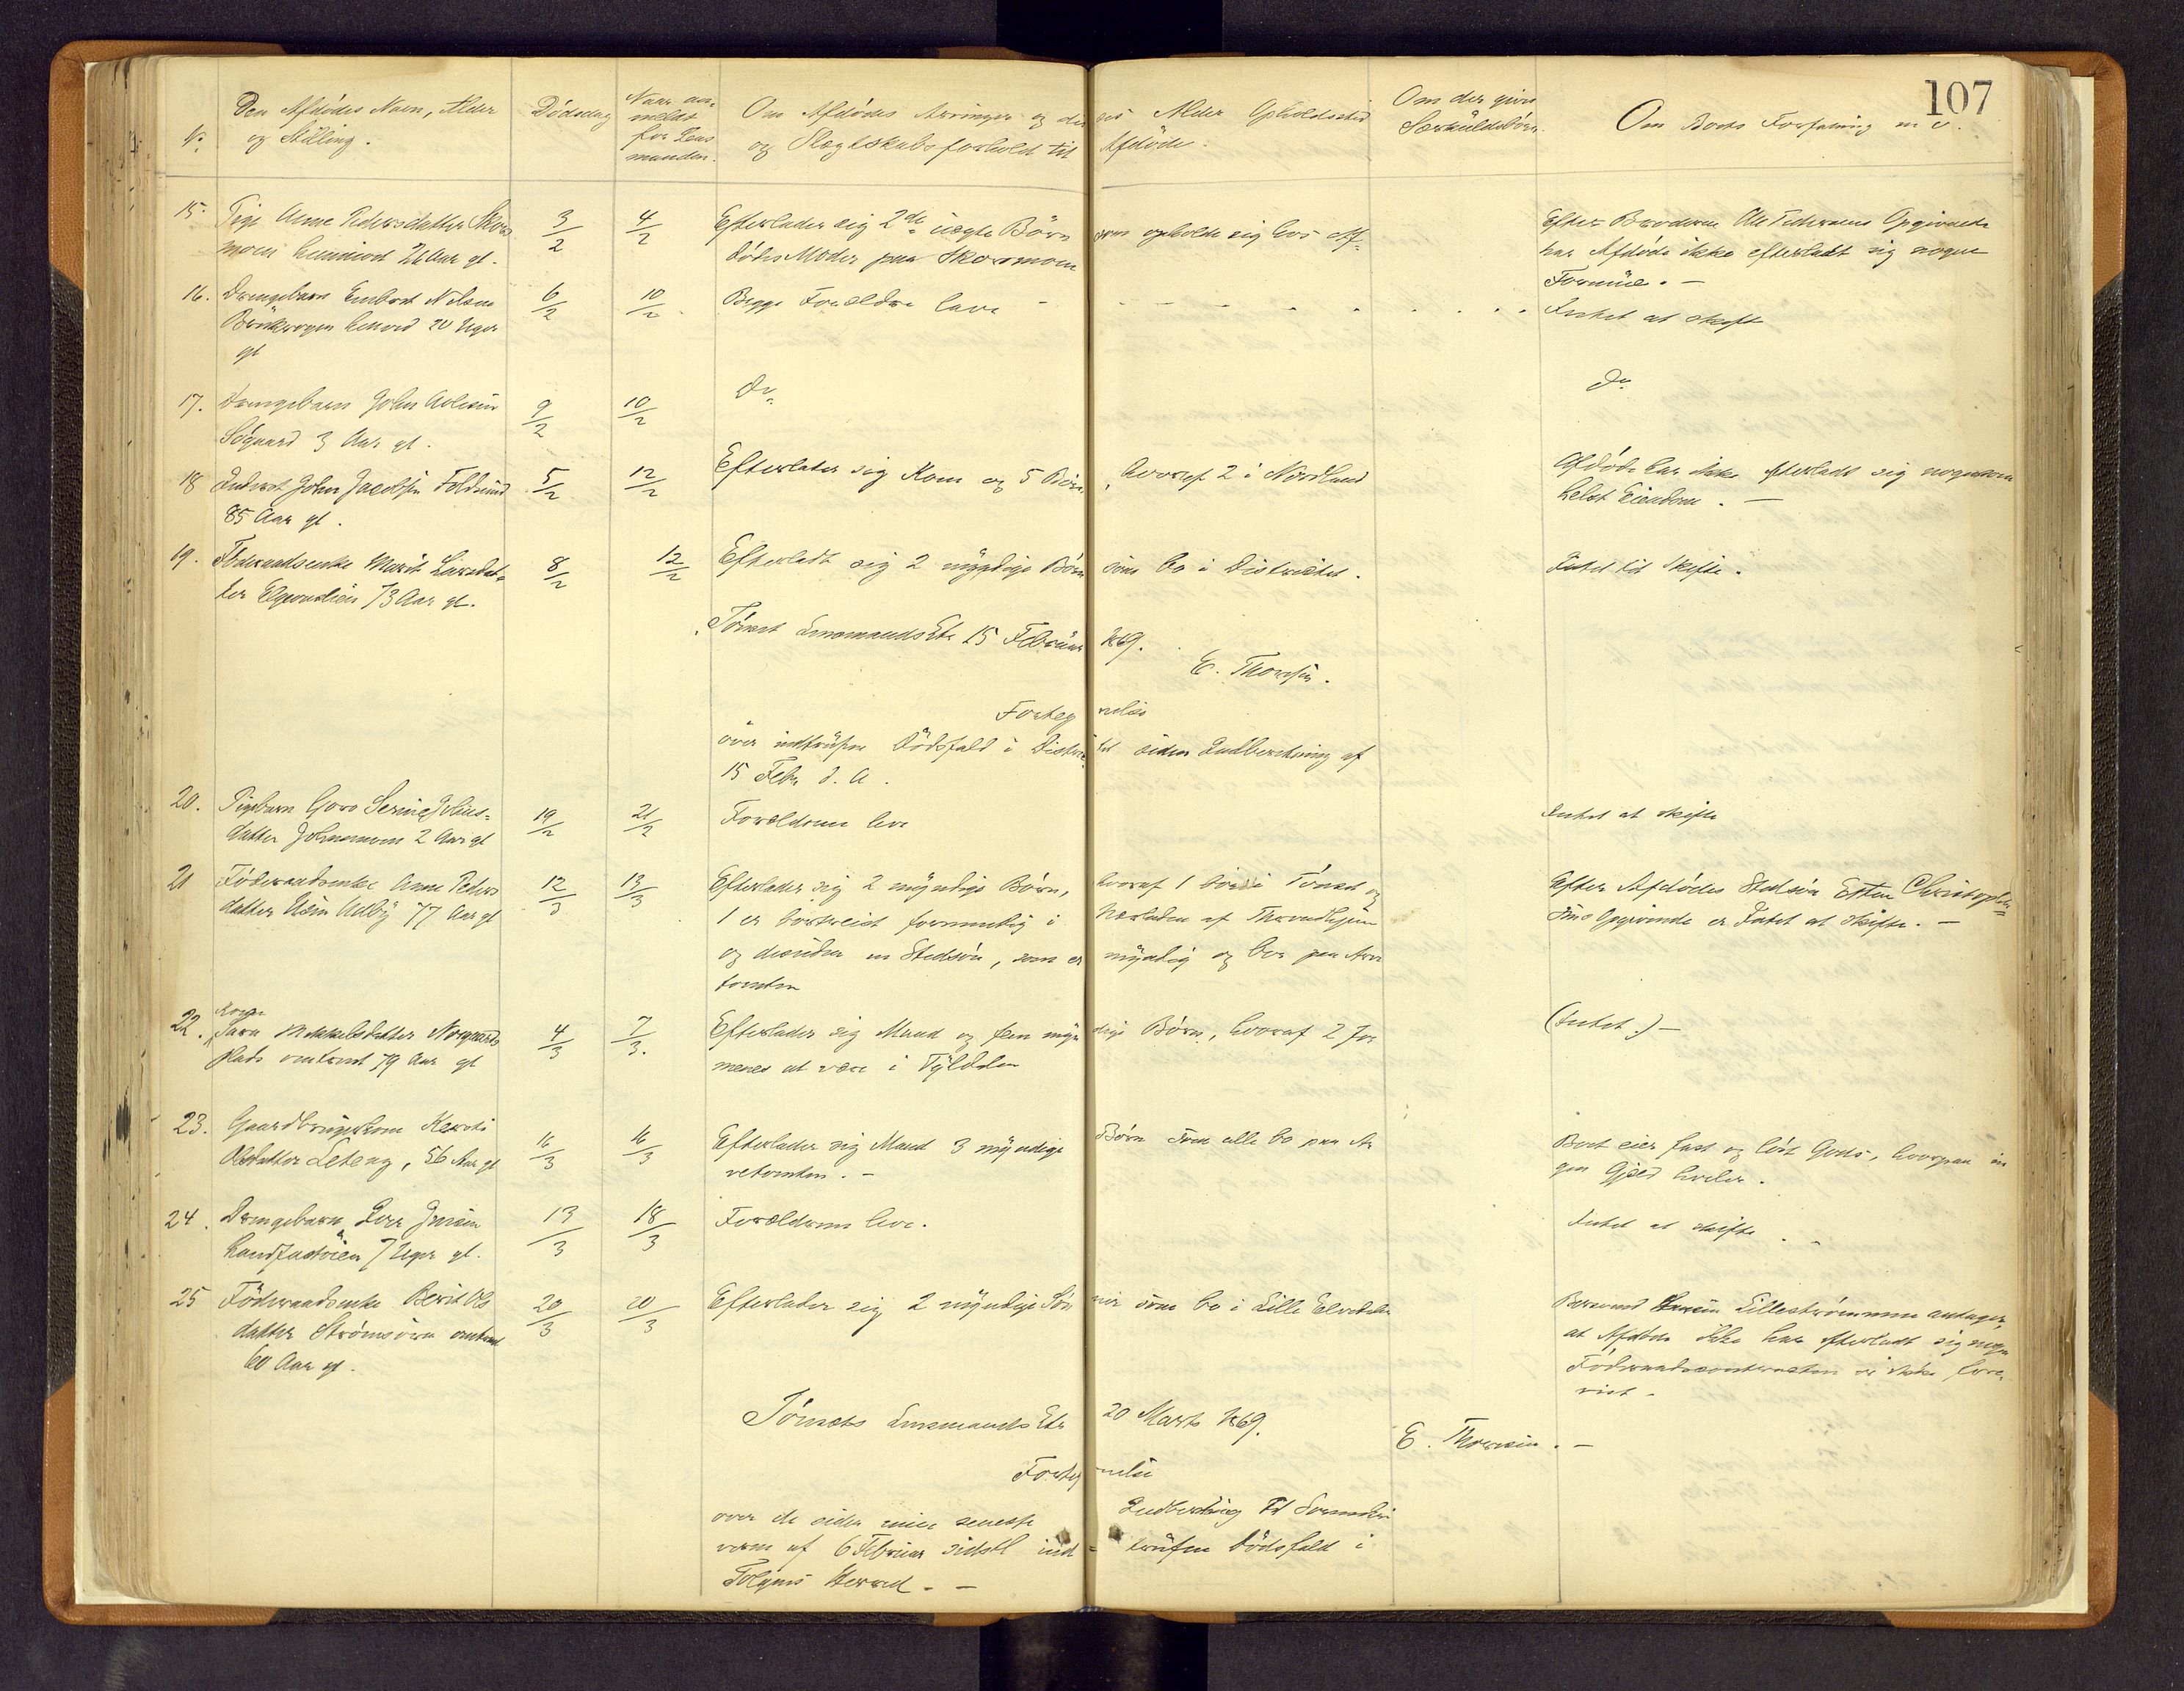 107
No
Den Afdødes Navn, Alder
og Stilling.
Dødsdag
Naar an-
meldt
for Lens
manden.
Om Afdødes Arvinger og deres Alder Opholdssted
og Slægtskabsforhold til Afdøde.
Om der gives
Særkuldsbørn.
Om Boets Forfatning m v.
15. Pige Anne Pedersdatter Skors
moen 26 Aar gl.
3/2
4/2
Efterlader sig 2de uægte Børn som opholde sig hos Af-
dødes Moder paa Skorsmoen
Efter Broderen Ole Pedersens Opgivende
har Afdøde ikke efterladt sig nogen
Formue. -
16. Drengebarn Embret Nilsen
20 Uger
gl
6/2
10/2
Begge Forældre leve -
Intet at skifte
17. Drengebarn John
Søgaard 3 Aar gl.
9/2
10/2
Do
Do
18 Inderst John Jacobsen
85 Aar gl.
5/2
12/2
Efterlader sig Kone og 5 Børn, hvoraf 2 i Nordland
Afdøde har ikke efterladt sig nogensom
helst Eiendom. -
19. Føderaadsenke Marit Larsdat-
ter 73 Aar gl.
8/2
12/2
Efterladt sig 2 myndige Børn som bo i Distriktet.
Intet til Skifte.
Tønset Lensmands Etr 15 Februar 1869.
E. Thoresen.
Fortegnelse
over indtrufne Dødsfald i Distriktet siden Indberetning af
15 Febr d. A.
20. Pigebarn Goro Serine
datter Johnsmoen 2 Aar gl
19/2
21/2
Forældrene leve
Intet at skifte
21 Føderaadsenke Anne Peders
datter 77 Aar gl
12/3
13/3
Efterlader sig 2 myndige Børn, hvoraf 1 bor i Tønset og
1 er bortreist formentlig i Nærheden af Throndhjem
og desuden en Stedsøn, som er myndig og bor paa Arve
tomten
Efter Afdødes Stedsøn Esten Christoph-
sens Opgivende er Intet at skifte. -
22. Kone
Sara Mikkelsdatter Nygaards
plads omtrent 79 Aar gl
4/3
7/3.
Efterlader sig Mand og fem myndige Børn, hvoraf 2 for
menes at være i Tyldalen
(Intet.) -
23. Gaardbrugerkone Kersti
Olsdatter Leteng, 56 Aar gl
16/3
16/3
Efterlader sig Mand 3 myndige Børn som alle bo paa Ar
vetomten. -
Boet eier fast og løst Gods, hvorpaa in
gen Gjæld hviler.
24. Drengebarn
7 Uger gl.
13/3
18/3
Forældrene leve.
Intet at skifte.
25 Føderaadsenke Berit Ols
datter Strømsøren omtrent
60 Aar gl.
20/3
20/3
Efterlader sig 2 myndige Sønner som bo i Lille Elvedalen
Lillestrømmen antager,
at Afdøde ikke har efterladt sig noget
Føderaadscontracten er ikke fore-
vist.
Tønsets Lensmands Etr 20 Marts 1869.
E. Thoresen. -
Fortegnelse
over de siden min seneste Indberetning til Sorenskri
veren af 6 Februar sidstl ind- trufne Dødsfald i
Tolgens Herred. -